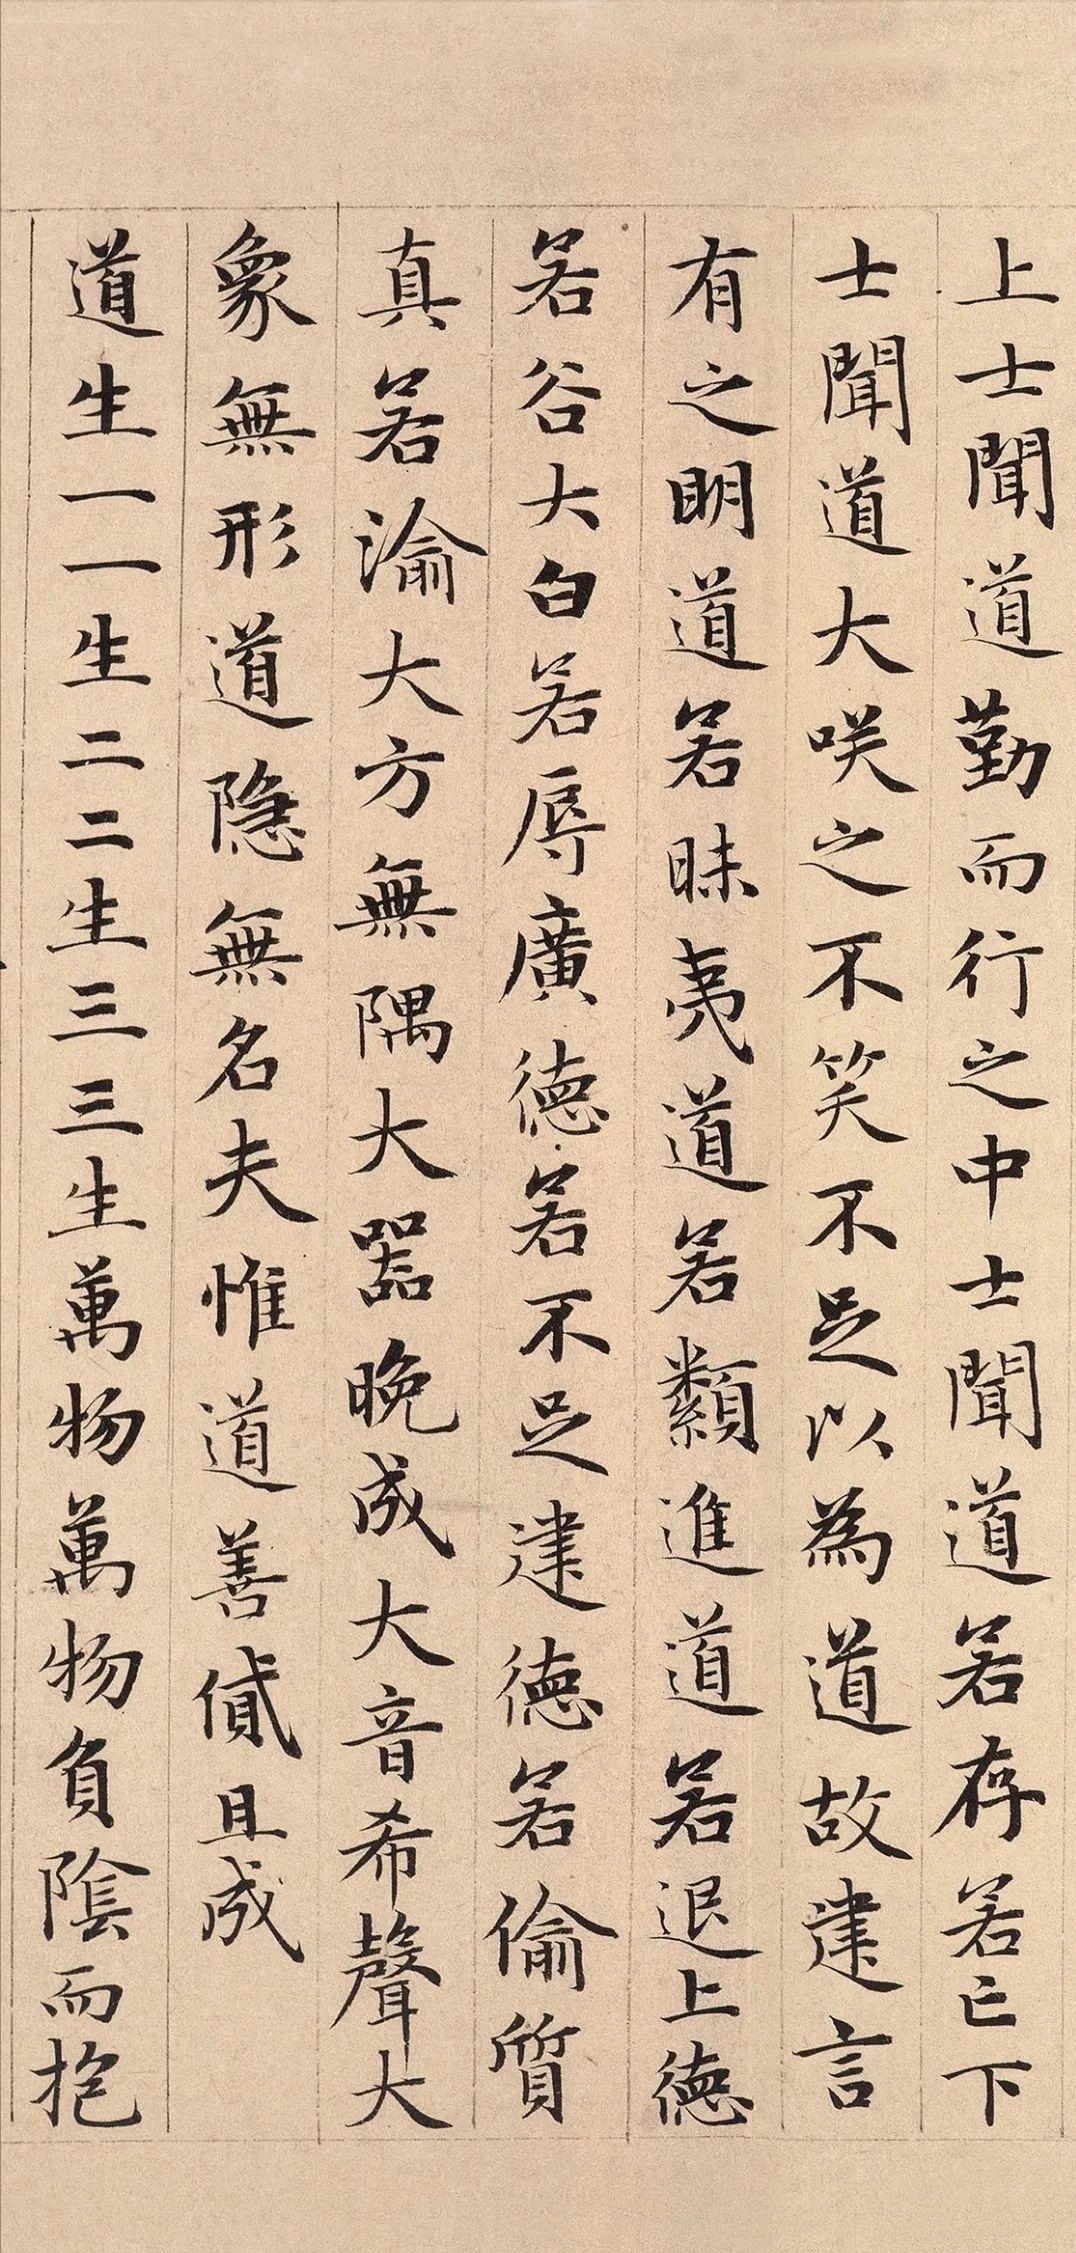 上士聞道勤而行之中士聞道若存若亡下
士聞道大咲之不笑不足以為道故建言
有之明道若昧夷道若纇進道若退上德
若谷大白若辱廣德若不足建德若偷質
真若渝大方無隅大器晚成大音希聲大
象無形道隱無名夫惟道善貸且成
道生一一生二二生三三生萬物萬物負陰而抱